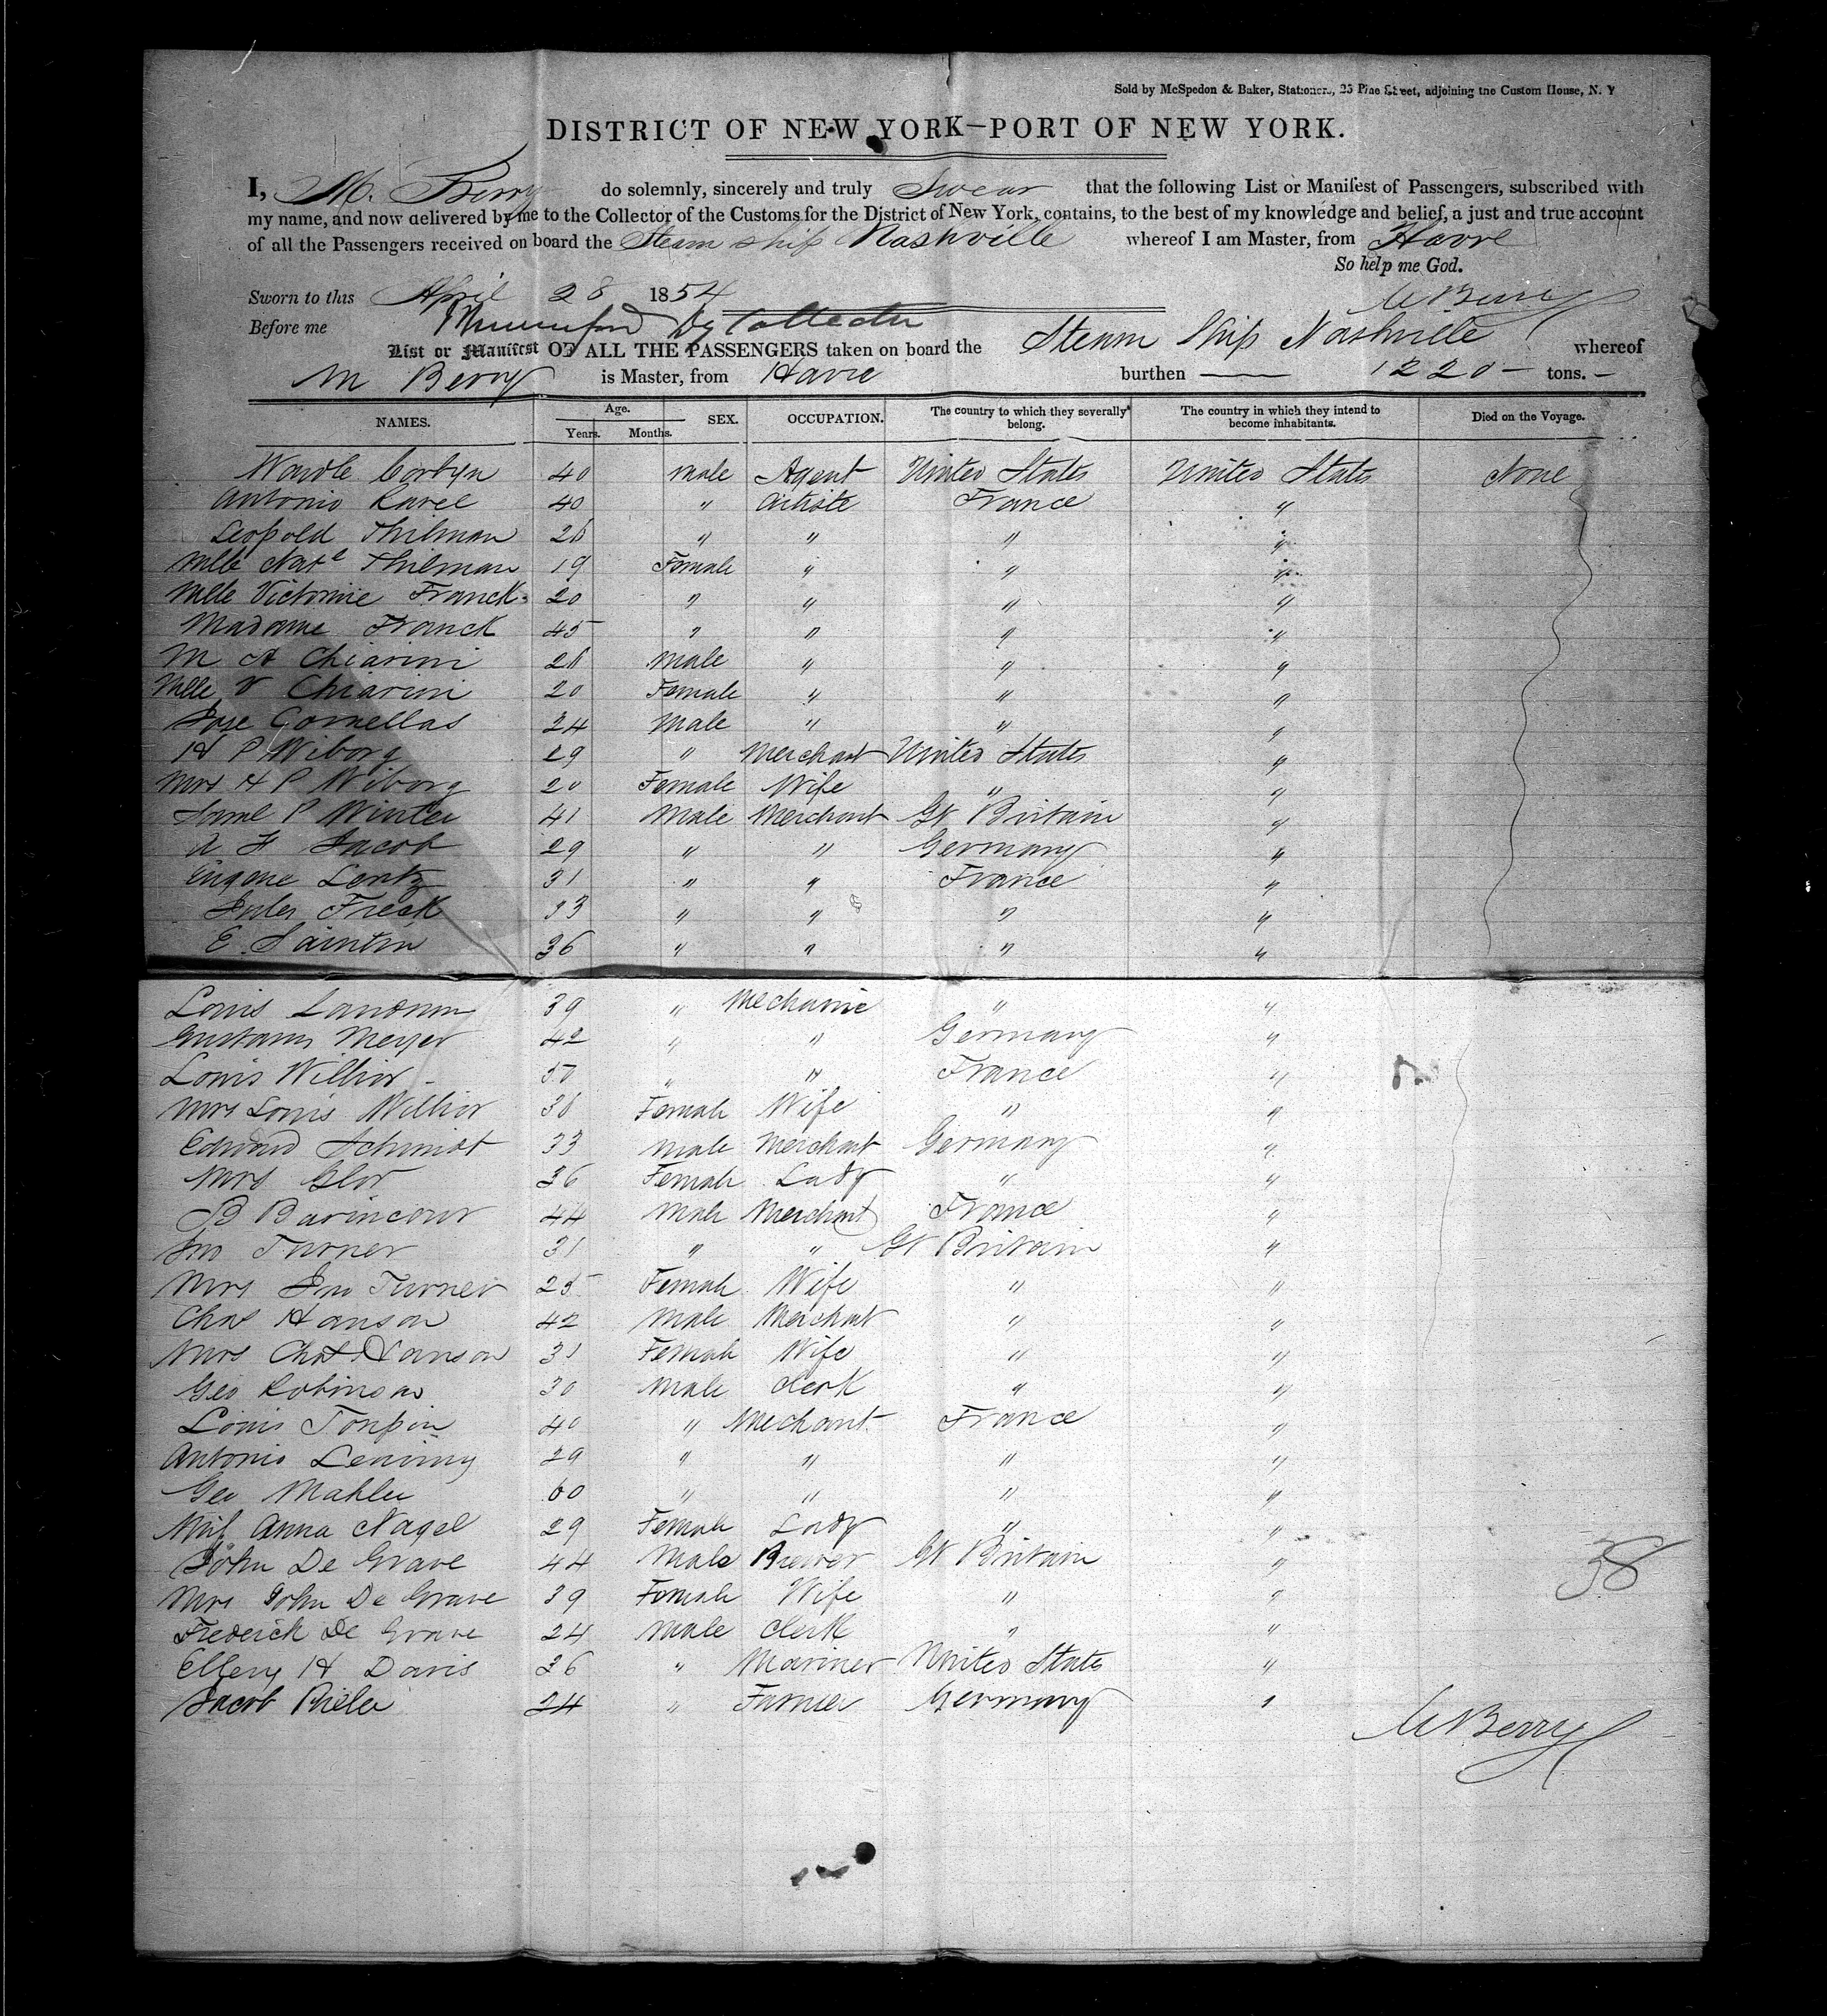 Sold by McSpedon & Baker, Stationers, 25 Pine Street, adjoining the Custom House, N. Y
DISTRICT OF NEW YORK—PORT OF NEW YORK.
I, M. Berry do solemnly, sincerely and truly Swear that the following List or Manifest of Passengers, subscribed with
my name, and now delivered by me to the Collector of the Customs for the District of New York, contains, to the best of my knowledge and belief, a just and true account
of all the Passengers received on board the Steam ship Nashville whereof I am Master, from Havre
So help me God.
Sworn to this April 28 1854 M Berry
Before me Dy Collector
List or Manifest OF ALL THE PASSENGERS taken on board the Steam Ship Nashville whereof
M Berry is Master, from Havre burthen — 1220 — tons. —
NAMES. Age. Years. Months. SEX. OCCUPATION. The country to which they severally belong. The country in which they intend to become inhabitants. Died on the Voyage.
Wardle Corbyn 40 Male Agent United States United States None
Antonio Ravel 40 " Artiste France "
Leopold Thilman 28 " " " "
Mlle Nate Thilman 19 Female " " "
Mlle Victorine Franck 20 " " " "
Madame Franck 45 " " " "
M A Chiarini 28 Male " " "
Mlle V Chiarini 20 Female " " "
Jose Cornellas 24 Male " " "
H P Wiborg 29 " Merchant United States "
Mrs H P Wiborg 20 Female Wife " "
Saml P Winter 41 Male Merchant Gt Britain "
A F Jacob 29 " " Germany "
Eugene Lentz 31 " " France "
Jules Freck 33 " " " "
E. Saintin 36 " " " "
Louis 39 " Mechanic " "
Gustavus Meyer 42 " " Germany "
Louis Willior 50 " " France "
Mrs Louis Willior 38 Female Wife " "
Edward Schmidt 33 Male Merchant Germany "
Mrs Glor 36 Female Lady " "
B Barincour 44 Male Merchant France "
Jno Turner 31 " " Gt Britain "
Mrs Jno Turner 25 Female Wife " "
Chas Hanson 42 Male Merchant " "
Mrs Chas Hanson 31 Female Wife " "
Geo Robinson 30 Male Clerk " "
Louis Tonpin 40 " Mechant France "
Antonio 29 " " " "
Geo Mahler 60 " " " "
Miss Anna Nagel 29 Female Lady " "
John De Grave 44 Male Brewer Gt Britain "
Mrs John De Grave 39 Female Wife " "
Frederick De Grave 24 Male Clerk " "
Ellery H Davis 36 " Mariner United States "
Jacob Rieler 24 " Farmer Germany "
38
M Berry